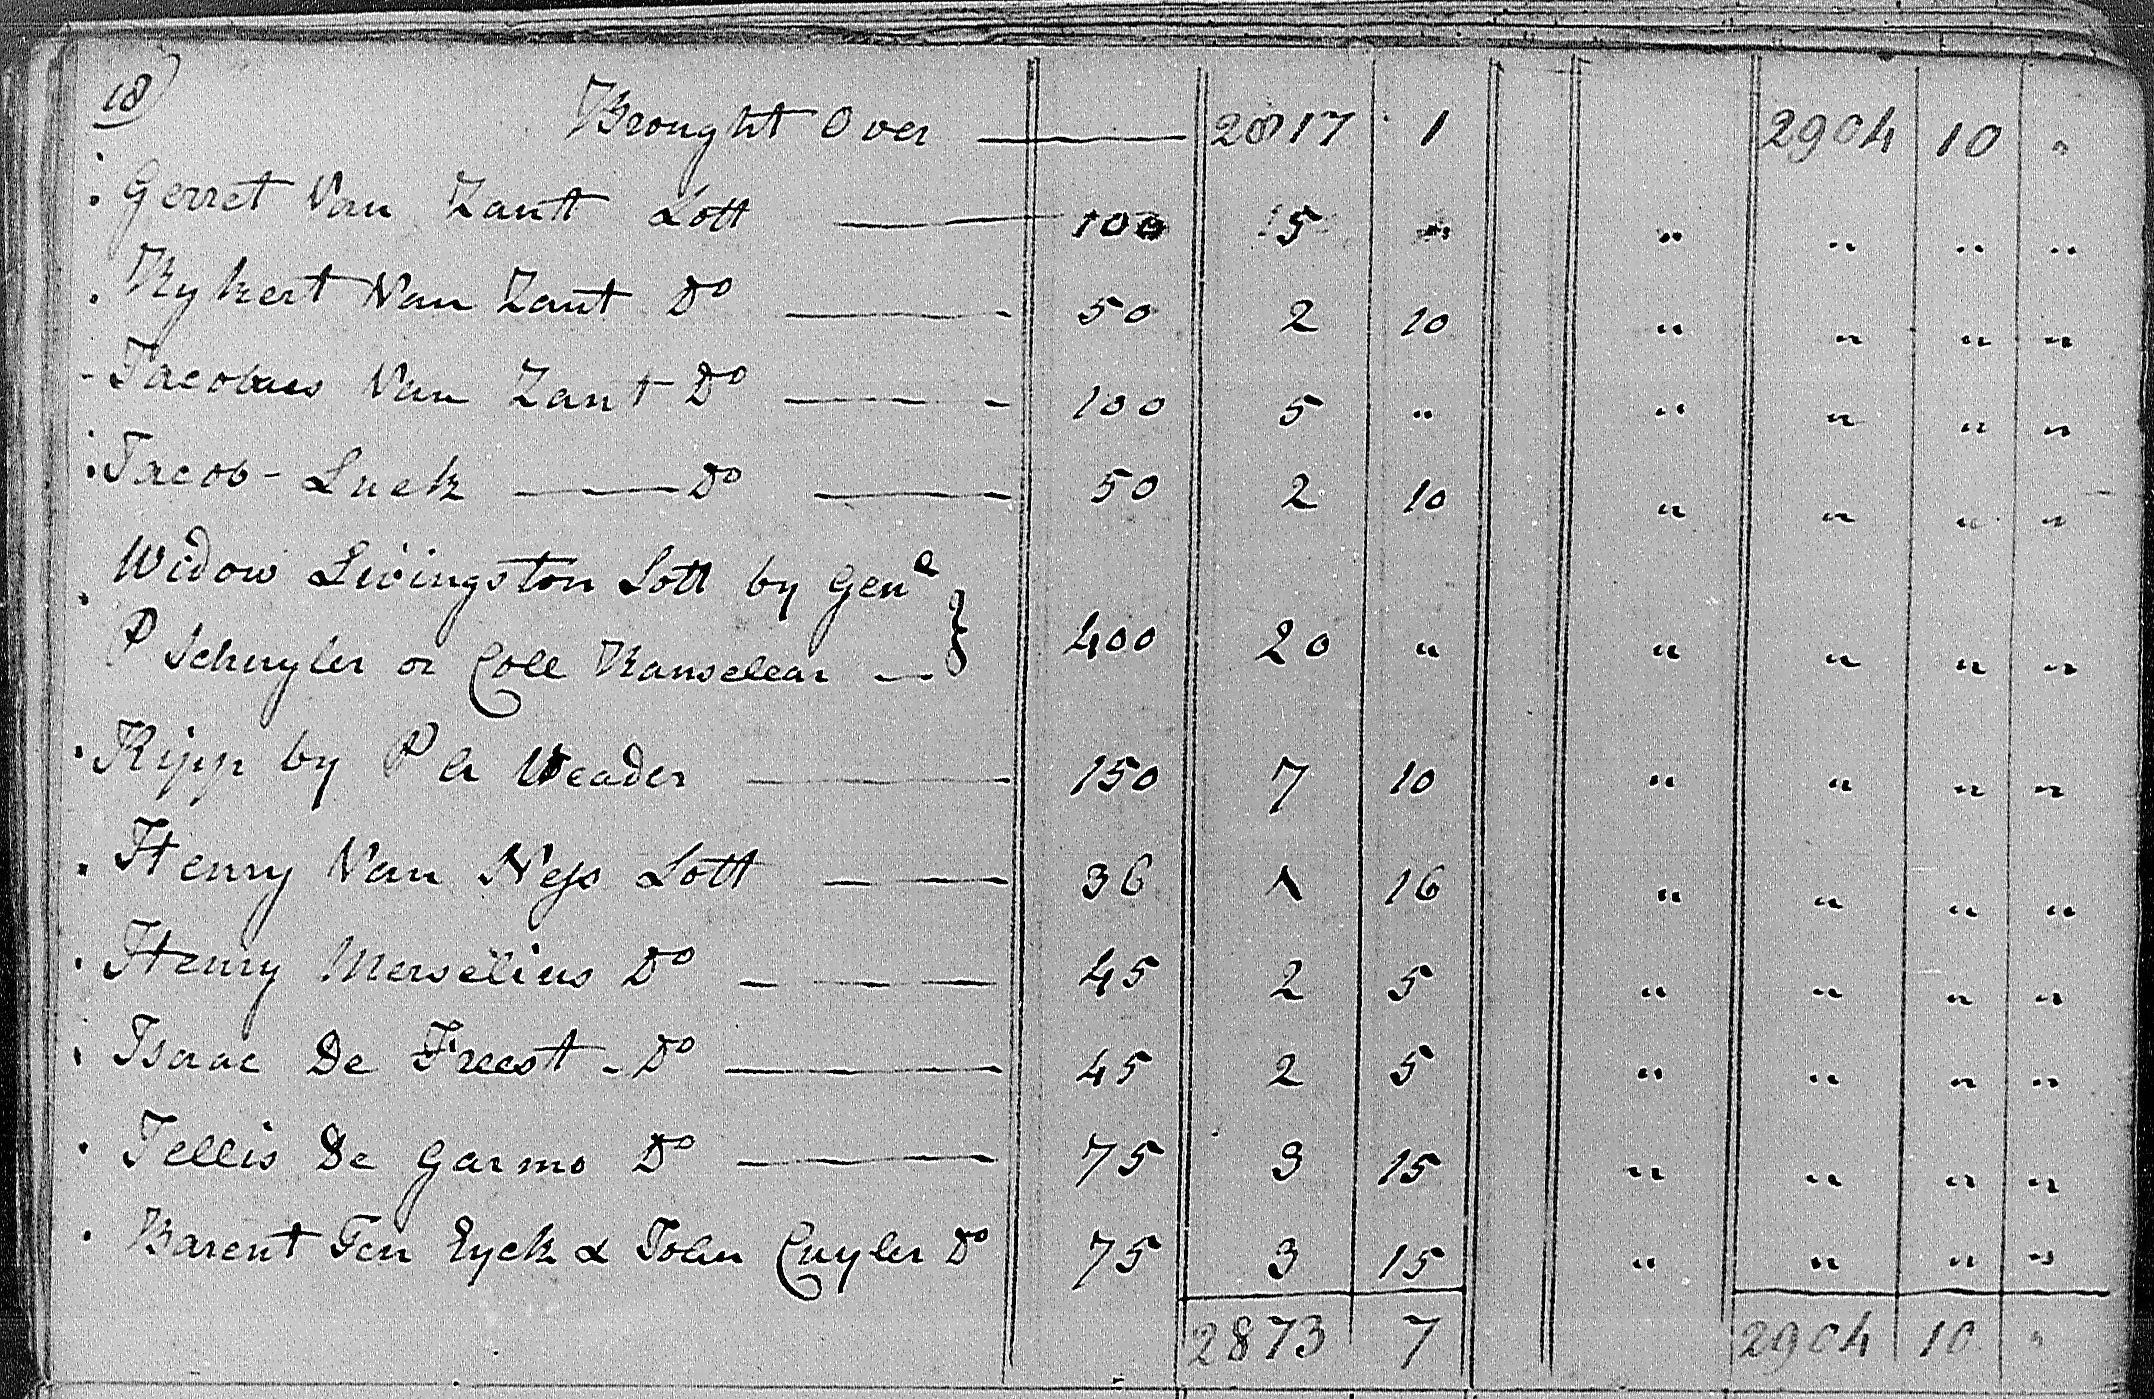 18
Brought Over 2817 1 2904 10 "
Gerret Van Zantt Lott 100 5 " " " " "
Rykert Van Zant Do 50 2 10 " " " "
Jacobus Van Zant Do 100 5 " " " " "
Jacob - Luek Do 50 2 10 " " " "
Widow Livingston Lott by Genl
P Schuyler or Coll Ranselear 400 20 " " " " "
Kipp by P A Weader 150 7 10 " " " "
Henry Van Ness Lott 36 1 16 " " " "
Henry Merselius Do 45 2 5 " " " "
Isaac De Freest - Do 45 2 5 " " " "
Jellis De Garmo Do 75 3 15 " " " "
Barent Ten Eyck & John Cuyler Do 75 3 15 " " " "
2873 7 2904 10 "